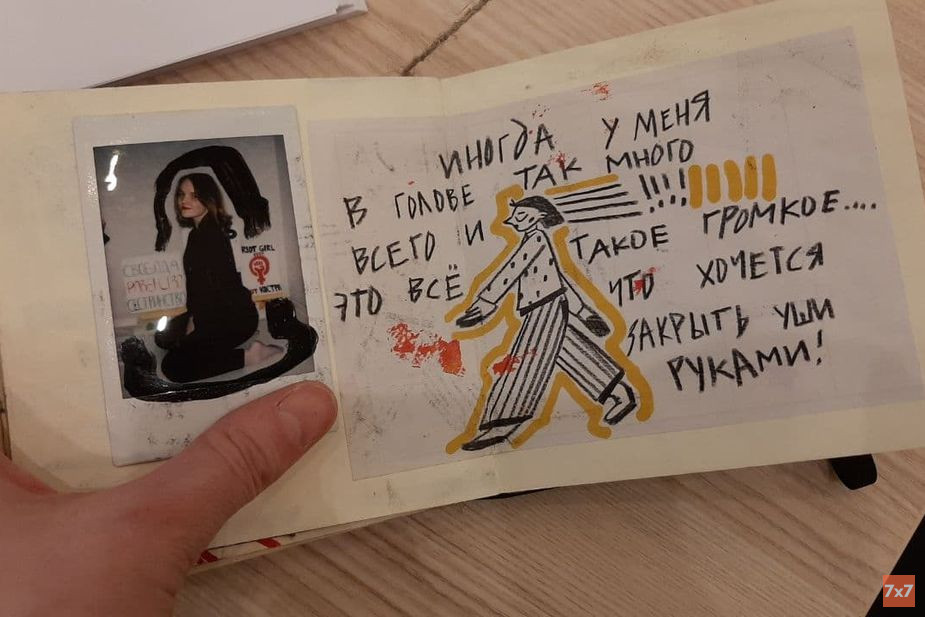 СВОБОДА
РАВЕНСТВО
СЕСТРИНСТВО
RIOT GIRL
КОСТРА
ИНОГДА У МЕНЯ
В ГОЛОВЕ ТАК МНОГО
ВСЕГО И !!!!
ЭТО ВСЁ ТАКОЕ ГРОМКОЕ....
ЧТО ХОЧЕТСЯ
ЗАКРЫТЬ УШИ
РУКАМИ!
7x7